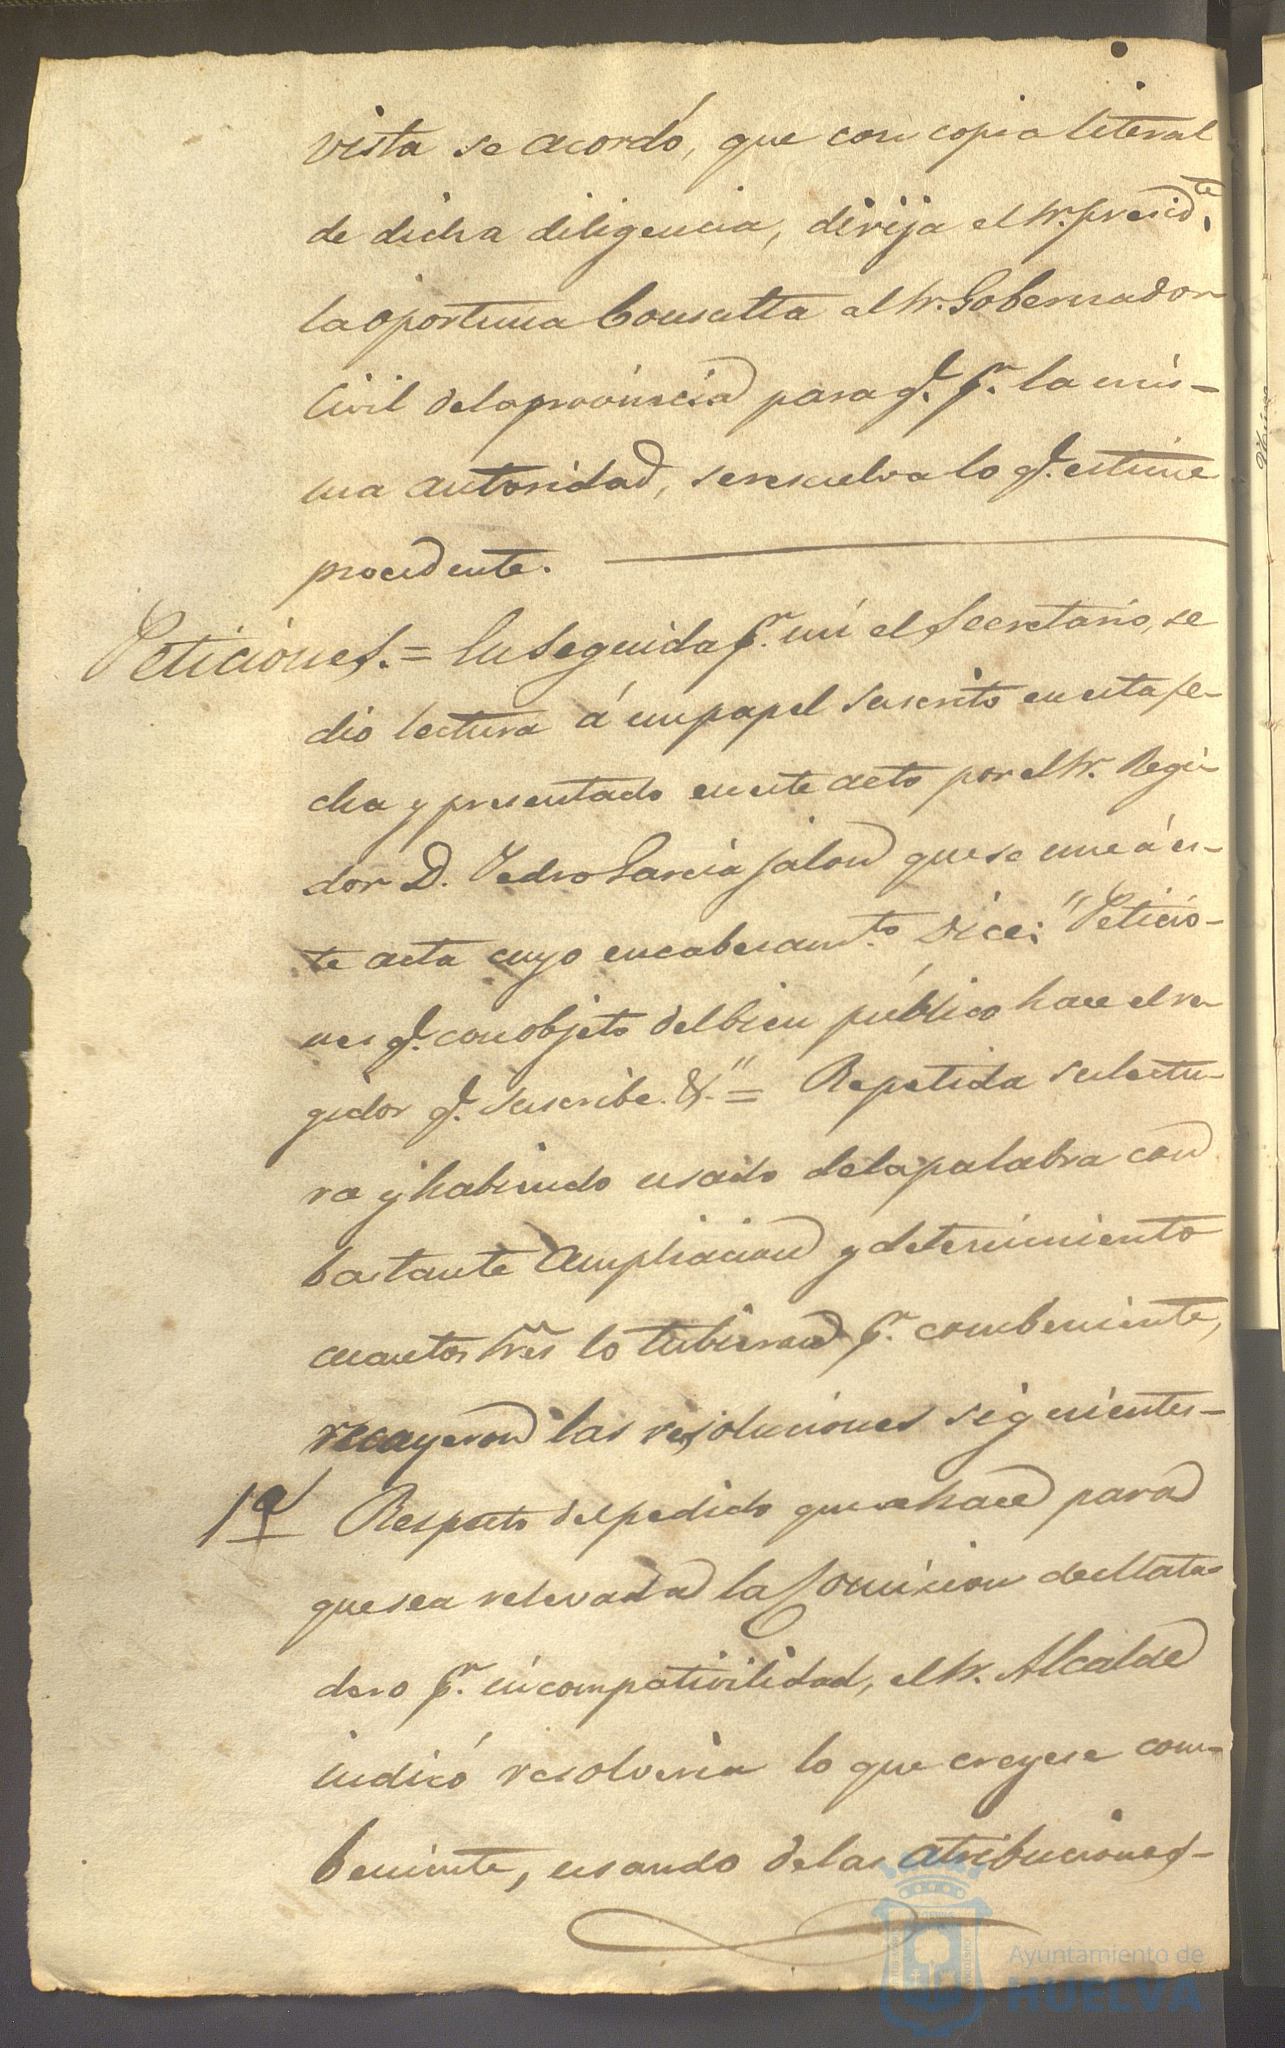 vista se acordó, que con copia literal
de dicha diligencia, dirija el Sr. presid.te
la oportuna Consulta al Sr. Gobernador
Civil de la provincia para q.e p.r la mis-
ma autoridad, se resuelva lo q.e estime
procedente.
Peticiones. = En Seguida p.r mi el Secretario, se
dio lectura á un papel suscrito en esta fe-
cha y presentado en este acto por el Sr. Regi-
dor D. Pedro Garcia Jalon que se une á es-
te acta cuyo encabesam.to Dice: "Peticio-
nes q.e con objeto del bien público hace el re-
gidor q.e suscribe. &." = Repetida su lectu-
ra y habiendo usado de la palabra con
bastante ampliacion y detenimiento
cuantos Sres lo tubieron p.r combeniente,
recayeron las resoluciones siguientes-
1ª Respecto del pedido que se hace para
que sea relevada la Comicion del Mata-
dero p.r incompativilidad, el Sr. Alcalde
indicó resolveria lo que creyese com-
beniente, usando de las atribuciones-
Ayuntamiento de
HUELVA